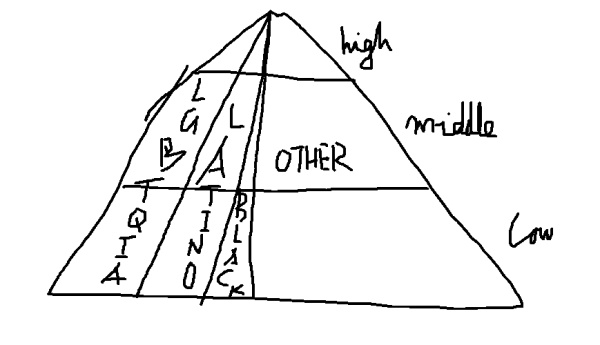 high
middle
low
LGBTQIA
LATINO
BLACK
OTHER